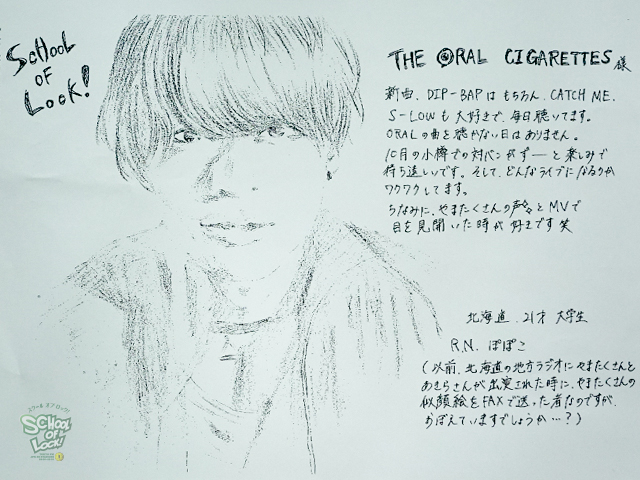 SCHOOL
OF
LOCK!
THE ORAL CIGARETTES 様
新曲、DIP-BAPはもちろん、CATCH ME、
S-LOWも大好きで、毎日聴いてます。
ORALの曲を聴かない日はありません。
10月の小樽での対バンがずーーっと楽しみで
待ち遠しいです。そして、どんなライブになるのか
ワクワクしてます。
ちなみに、やまたくさんの声とMVで
目を見開いた時が好きです 笑
北海道、21才 大学生
R.N. ぽぽこ
(以前、北海道の地方ラジオにやまたくさんと
あきらさんが出演された時に、やまたくさんの
似顔絵をFAXで送った者なのですが、
おぼえていますでしょうか…?)
スクール オブ ロック!
SCHOOL
OF
LOCK!